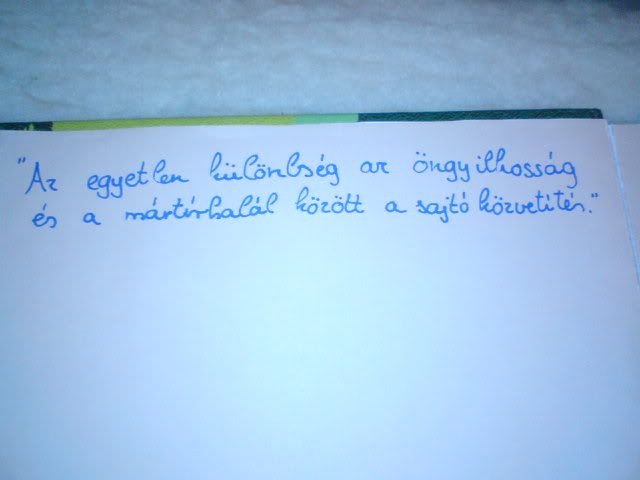 "Az egyetlen különbség az öngyilkosság
és a mártírhalál között a sajtó közvetítés."